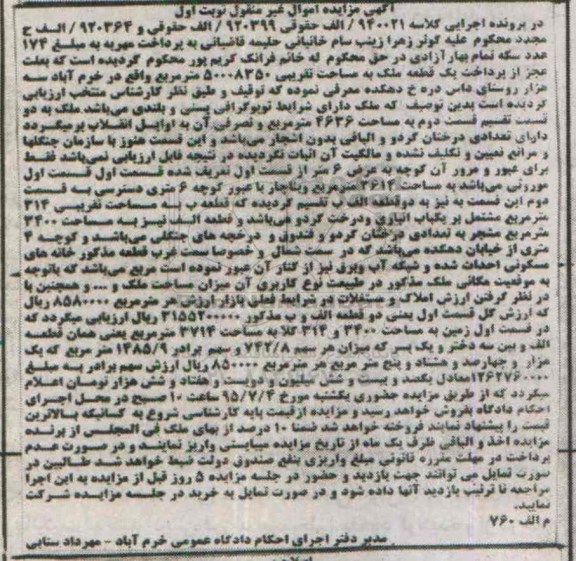 آگهی مزایده اموال غیر منقول نوبت اول
در پرونده اجرایی کلاسه ۹۴۰۰۲۱ / الف حقوقی ۹۲۰۳۹۹ / الف حقوقی و ۹۲۰۳۶۴ / الف ح
مجدد محکوم علیه کوثر زهرا زینب سام خانیانی حلیمه قاشبانی به پرداخت مهریه به مبلغ ۱۷۴
عدد سکه تمام بهار آزادی در حق محکوم له خانم فرانک کریم پور محکوم گردیده است که بعلت
عجز از پرداخت یک قطعه ملک به مساحت تقریبی ۵۰۰۰۸۳۵۰ مترمربع واقع در خرم آباد سه
هزار روستای داس دره خ دهکده معرفی نموده که توقیف و طبق نظر کارشناس منتخب ارزیابی
گردیده است بدین توصیف که ملک دارای شرایط توپوگرافی پستی و بلندی می‌باشد ملک به دو
قسمت تقیسم قسمت دوم به مساحت ۴۶۳۶ مترمربع و تصرفی آن به اوایل انقلاب برمیگردد
دارای تعدادی درختان گردو و الباقی بدون اشجار می‌باشد و این قسمت هنوز با سازمان جنگلها
و مراتع تعیین و تکلیف نشده و مالکیت آن اثبات نگردیده در نتیجه قابل ارزیابی نمی‌باشد فقط
برای عبور و مرور آن کوچه به عرض ۶ متر از قسمت اول تعریف شده قسمت اول قسمت اول
موروثی می‌باشد به مساحت ۳۶۱۴ مترمربع وبناچار با عبور کوچه ۶ متری دسترسی به قسمت
دوم این قسمت به نیز به دوقطعه الف ب تقسیم گردیده که قطعه ب به مساحت تقریبی ۳۱۴
مترمربع مشتمل بر یکباب انباری ودرخت گردو می‌باشد و قطعه الف نیز به مساحت ۳۴۰۰
مترمربع مشجر به تعدادی درختان گردو و فندوق و درختچه های جنگلی می‌باشد و کوچه ۴
متری از خیابان دهکده می‌باشد که در سمت شمال و خصوصا سمت غرب قطعه مذکور خانه های
مسکونی احداث شده و شبکه آب وبرق نیز از کنار آن عبور نموده است مربع می‌باشد که باتوجه
به موقعیت مکانی ملک مذکور در طبیعت نوع کاربری آن میزان مساحت ملک و ... و همچنین با
در نظر گرفتن ارزش املاک و مستغلات در شرایط فعلی بازار ارزش هر مترمربع ۸۵۸۰۰۰۰ ریال
که ارزش کل قسمت اول یعنی دو قطعه الف و ب مذکور ۳۱۵۵۲۰۰۰۰۰ ریال ارزیابی میگردد که
در قسمت اول زمین به مساحت ۳۴۰۰ و ۳۱۴ کلا به مساحت ۳۷۱۴ مترمربع یعنی همان قطعه
الف و بین سه دختر و یک پسر که میزان هر سهم ۷۴۲/۸ و سهم برادر ۱۴۸۵/۹ متر مربع که یک
هزار و چهارصد و هشتاد و پنج متر مربع هر مترمربع ۸۵۰۰۰۰ ریال ارزش سهم برادر به مبلغ
۱۲۶۲۷۶۰۰۰۰ معادل یکصد و بیست و شش میلیون و دویست و هفتاد و شش هزار تومان اعلام
میگردد که از طریق مزایده حضوری یکشنبه مورخ ۹۵/۷/۴ ساعت ۱۰ صبح در محل اجرای
احکام دادگاه بفروش خواهد رسید و مزایده ازقیمت پایه کارشناسی شروع به کسانیکه بالاترین
قیمت را پیشنهاد نمایند فروخته خواهد شد ضمنا ۱۰ درصد از بهای ملک فی المجلس از برنده
مزایده اخذ و الباقی ظرف یک ماه از تاریخ مزایده میبایستی واریز نمایند و در صورت عدم
پرداخت در مهلت مقرره قانونی مبلغ واریزی بنفع صندوق دولت ضبط خواهد شد طالبین در
صورت تمایل می توانند جهت بازدید و حضور در جلسه مزایده ۵ روز قبل از مزایده به این اجرا
مراجعه تا ترتیب بازدید آنها داده شود و در صورت تمایل به خرید در جلسه مزایده شرکت
نمایند.
م الف ۷۶۰
مدیر دفتر اجرای احکام دادگاه عمومی خرم آباد - مهرداد سنایی